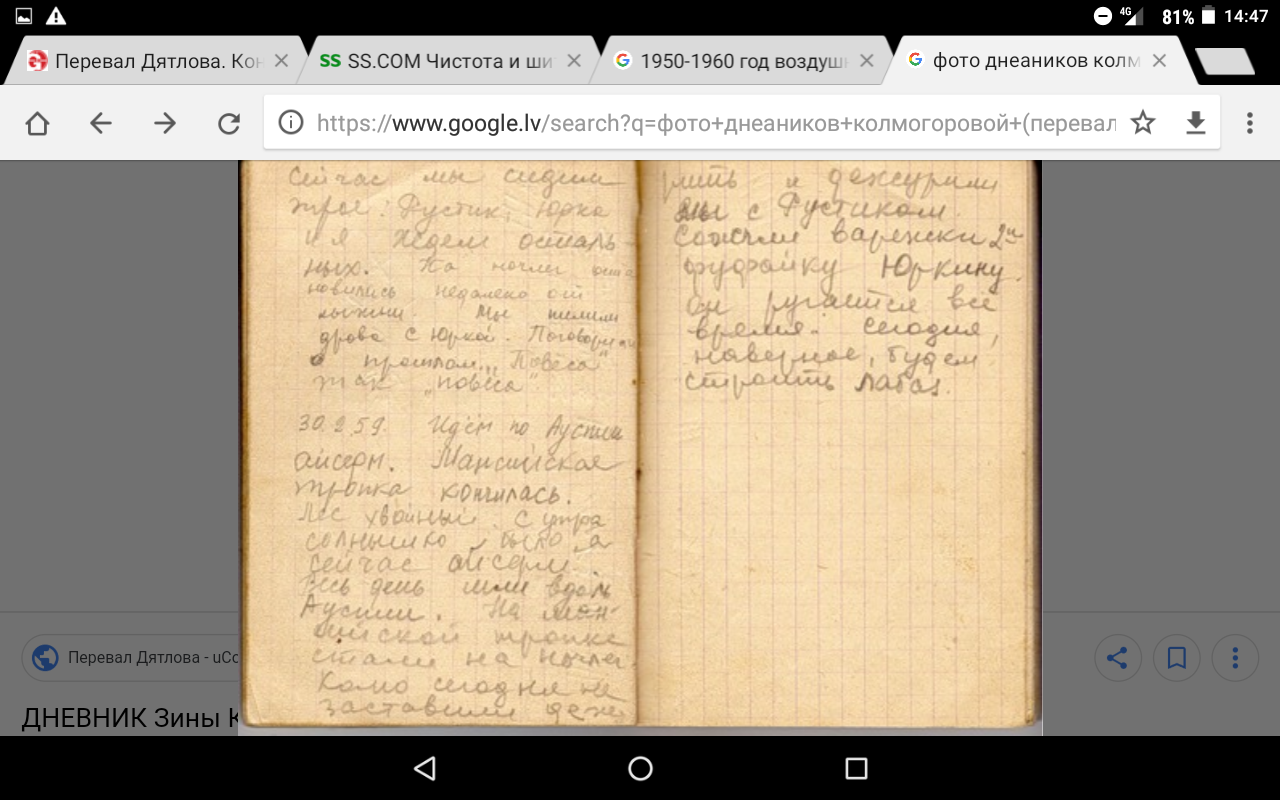 4G 81% 14:47
Перевал Дятлова. Кон
SS SS.COM Чистота и ши
1950-1960 год воздушн
фото днеаников колм
https://www.google.lv/search?q=фото+днеаников+колмогоровой+(перевал
сейчас мы сидим
трое: Рустик, Юрка
и я ждем осталь-
ных. На ночлег оста
новились недалеко от
лыжни. Мы пилили
дрова с Юркой. Поговорили
о прошлом. „Повеса"
так „повеса"
30.2.59. Идём по Ауспии
айсерм. Мансийская
тропка кончилась.
Лес хвойный. С утра
солнышко было, а
сейчас айсерм.
Весь день шли вдоль
Ауспии. На ман-
сийской тропке
стали на ночлег.
Колю сегодня не
заставили деж
рить и дежурили
мы с Рустиком.
Сожгли варежки 2ую
фуфайку Юркину.
он ругается всё
время. Сегодня,
наверное, будем
строить лабаз.
Перевал Дятлова - uCo
ДНЕВНИК Зины К